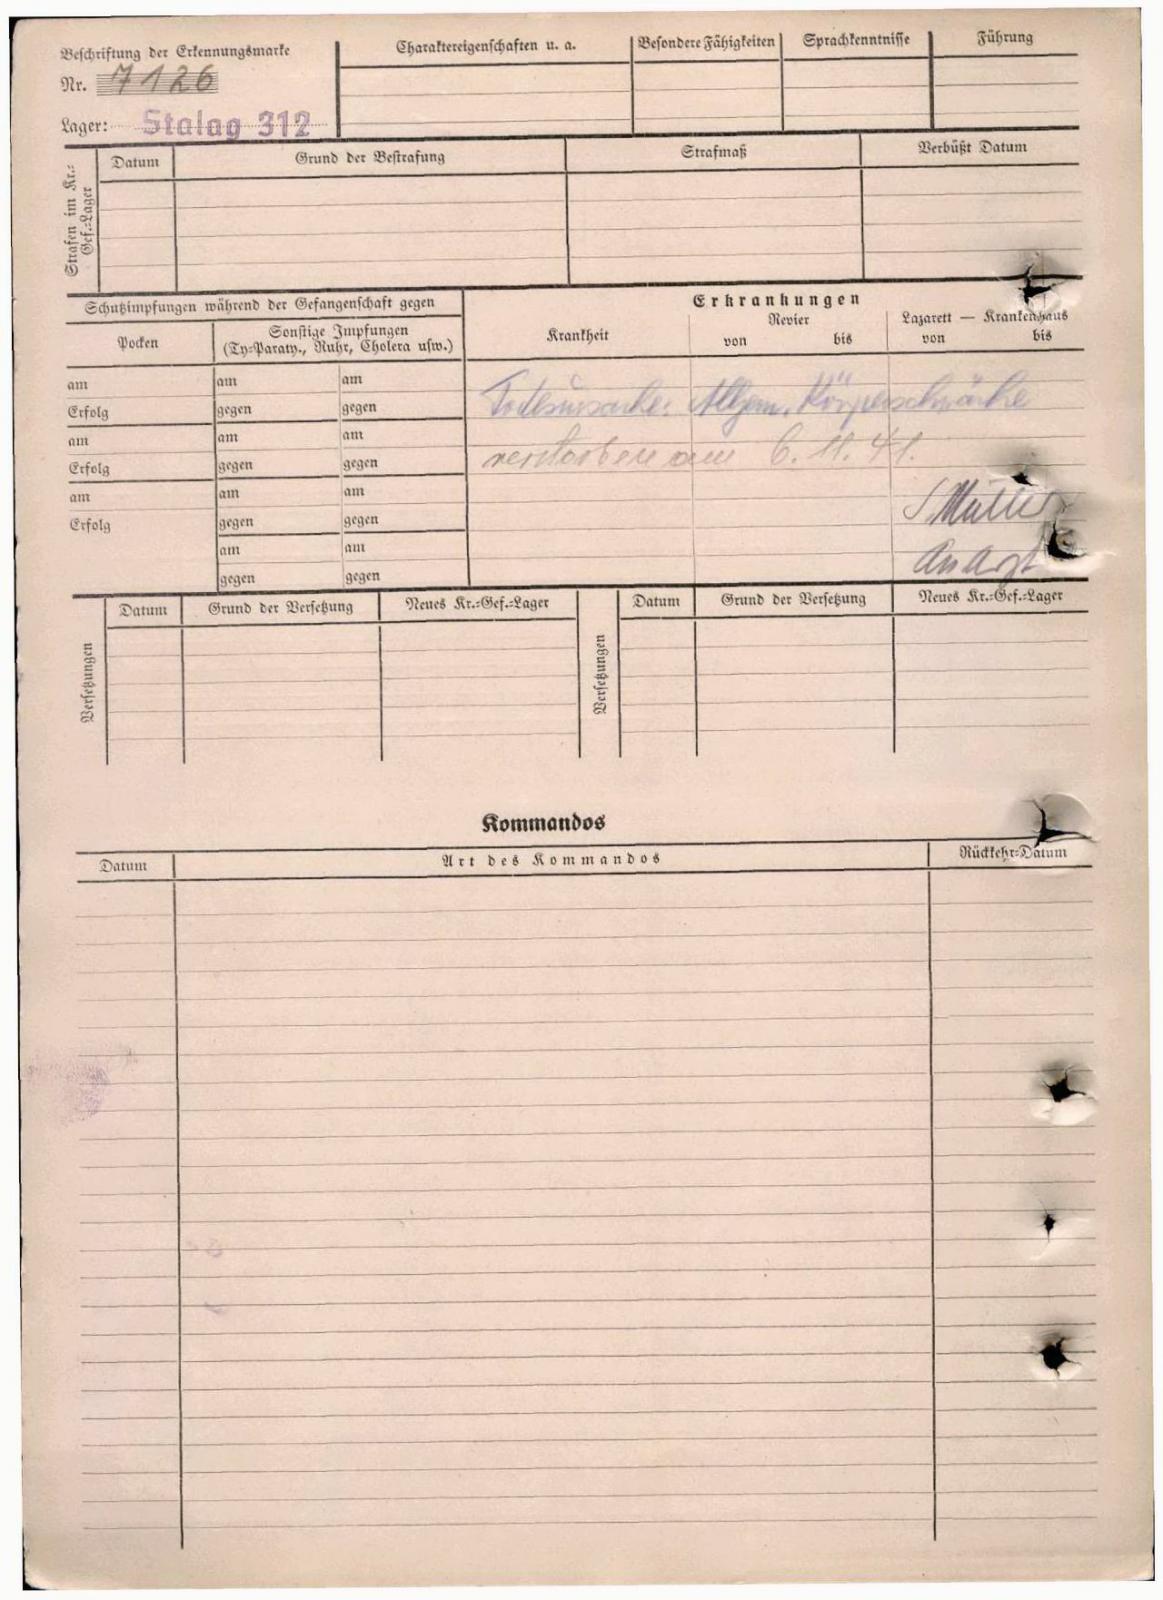 Beschriftung der Erkennungsmarke
Nr. 7126
Lager: Stalag 312
Charaktereigenschaften u. a.
Besondere Fähigkeiten
Sprachkenntnisse
Führung
Strafen im Kr.-Gef.-Lager
Datum
Grund der Bestrafung
Strafmaß
Verbüßt Datum
Schutzimpfungen während der Gefangenschaft gegen
Pocken
Sonstige Impfungen
(Ty-Paraty., Ruhr, Cholera usw.)
am am am
Erfolg gegen gegen
am am am
Erfolg gegen gegen
am am am
Erfolg gegen gegen
am am
gegen gegen
Erkrankungen
Krankheit
Revier
von bis
Lazarett — Krankenhaus
von bis
Todesursache: Allgem. Körperschwäche
verstorben am 6. 11. 41.
Müller
Versetzungen
Datum
Grund der Versetzung
Neues Kr.-Gef.-Lager
Versetzungen
Datum
Grund der Versetzung
Neues Kr.-Gef.-Lager
Kommandos
Datum
Art des Kommandos
Rückkehr-Datum